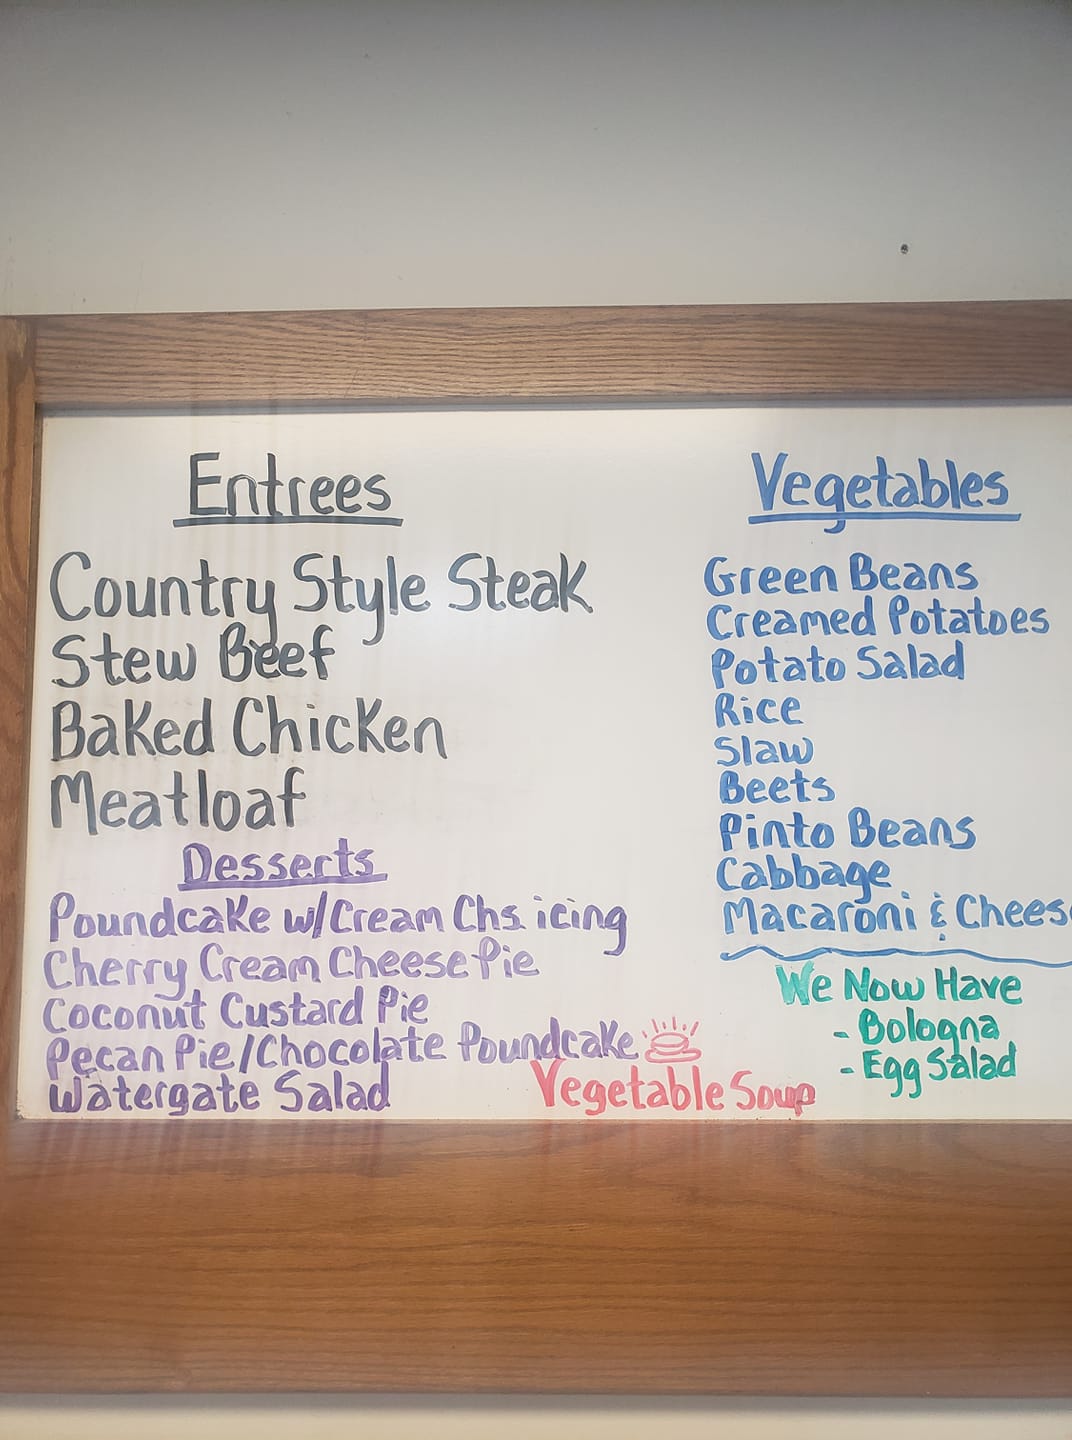 Entrees
Country Style Steak
Stew Beef
Baked Chicken
Meatloaf
Desserts
Poundcake w/Cream Chs. icing
Cherry Cream Cheese Pie
Coconut Custard Pie
Pecan Pie/Chocolate Poundcake
Watergate Salad
Vegetable Soup
Vegetables
Green Beans
Creamed Potatoes
Potato Salad
Rice
Slaw
Beets
Pinto Beans
Cabbage
Macaroni & Chees
We Now Have
- Bologna
- Egg Salad